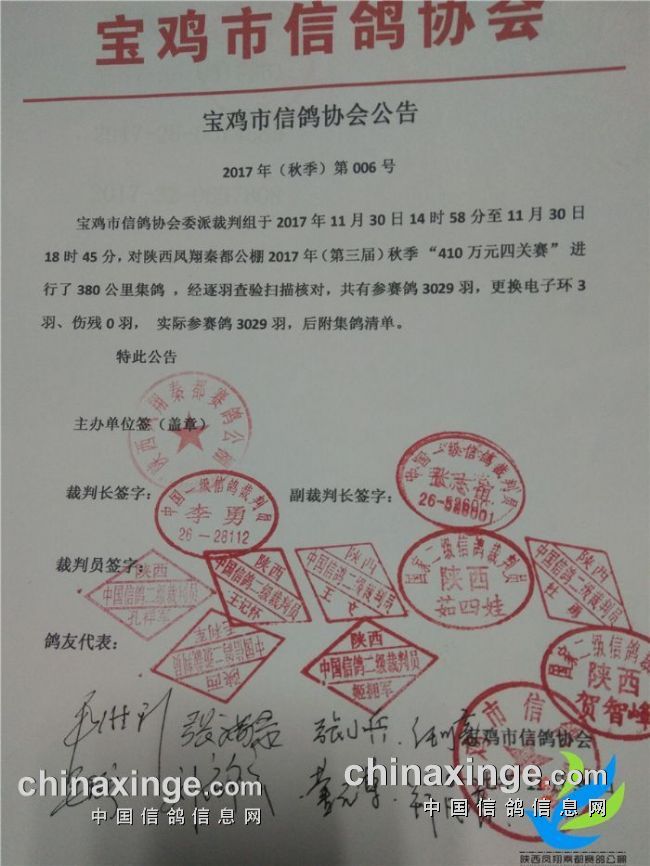 宝鸡市信鸽协会
宝鸡市信鸽协会公告
2017 年（秋季）第 006 号
宝鸡市信鸽协会委派裁判组于 2017 年 11 月 30 日 14 时 58 分至 11 月 30 日
18 时 45 分，对陕西凤翔秦都公棚 2017 年（第三届）秋季 “410 万元四关赛” 进
行了 380 公里集鸽 ，经逐羽查验扫描核对，共有参赛鸽 3029 羽，更换电子环 3
羽、伤残 0 羽， 实际参赛鸽 3029 羽，后附集鸽清单。
特此公告
陕西凤翔秦都赛鸽公棚
主办单位签（盖章）
裁判长签字：
中国二级信鸽裁判员
李勇
26－28112
副裁判长签字：
中国二级信鸽裁判员
裁判员签字：
陕西
中国信鸽二级裁判员
孔祥军
陕西
中国信鸽二级裁判员
王记怀
陕西
中国信鸽二级裁判员
王文
国家二级信鸽裁判员
陕西
茹四娃
陕西
中国信鸽二级裁判员
杜勇
鸽友代表：
陕西
中国信鸽二级裁判员
王利军
陕西
中国信鸽二级裁判员
姬拥军
国家二级信鸽裁判员
陕西
贺智峰
宝鸡市信鸽协会
chinaxinge.com
中国信鸽信息网
chinaxinge.com
中国信鸽信息网
陕西凤翔秦都赛鸽公棚